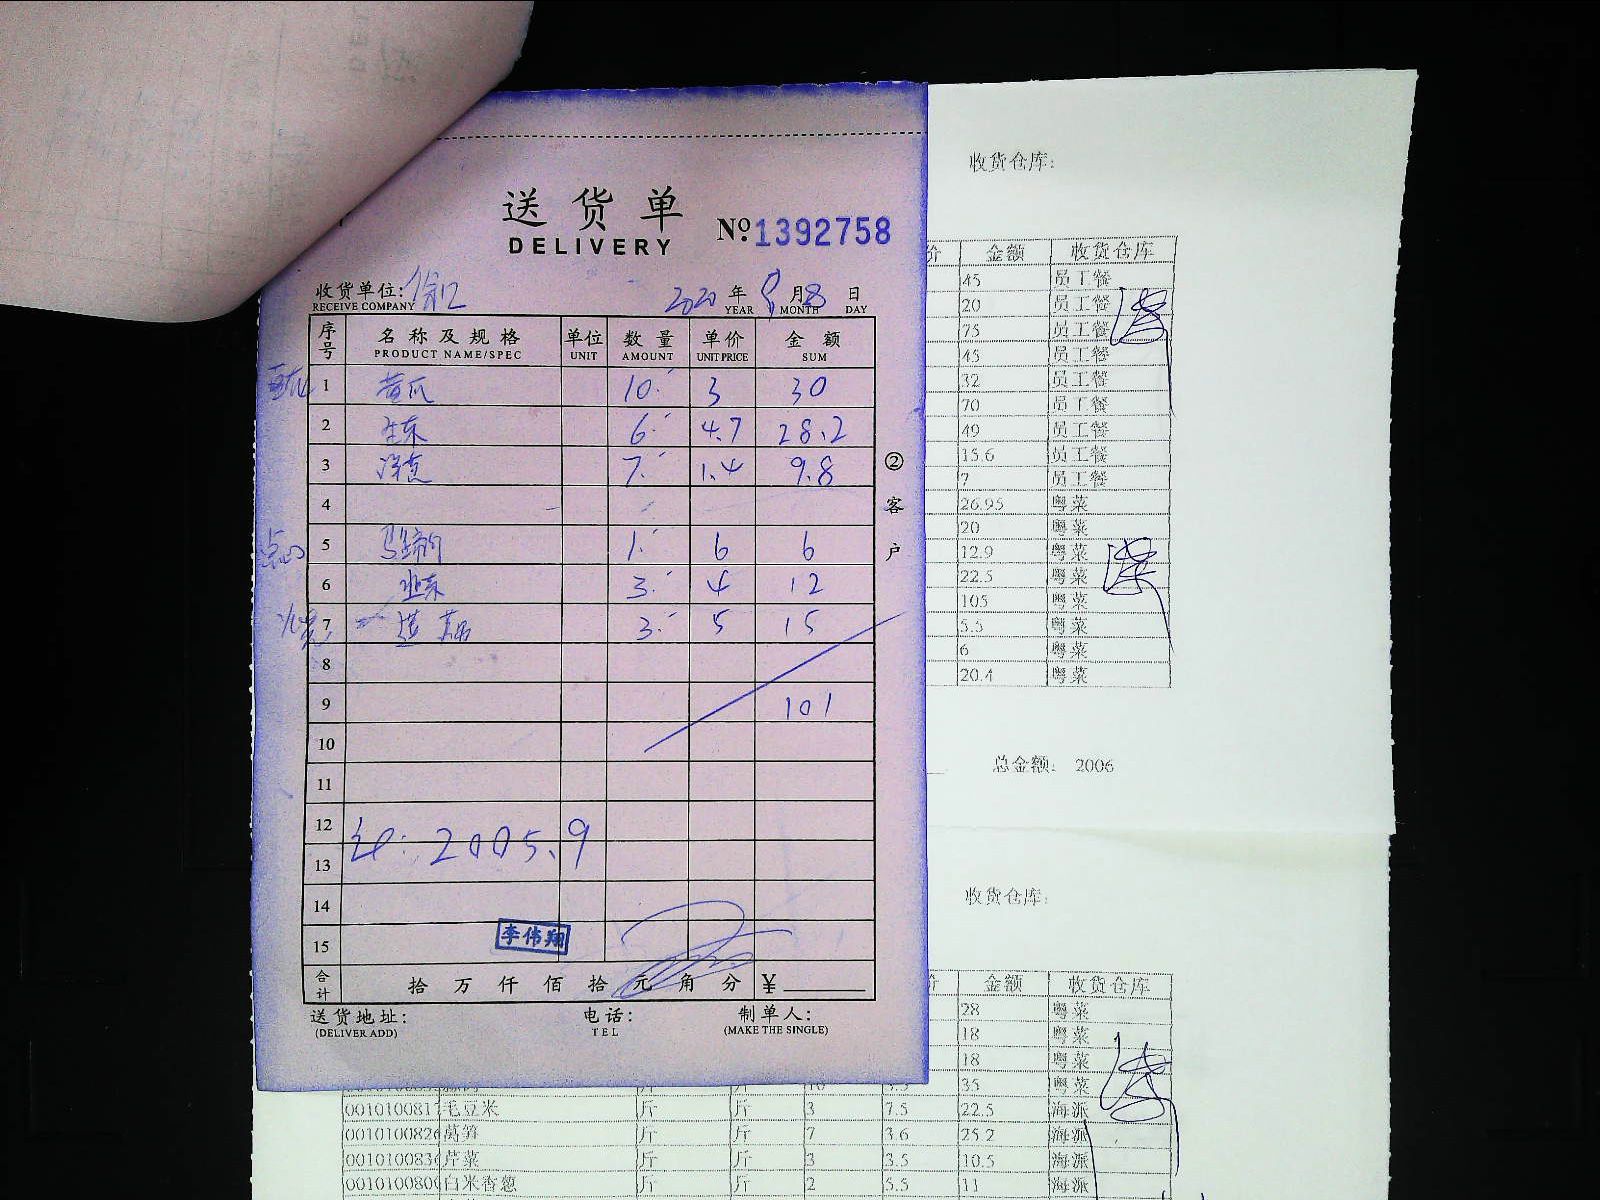 送货单
DELIVERY
№1392758
收货单位: 徐汇
RECEIVE COMPANY
2020 年 9 月 8 日
YEAR MONTH DAY
序号 名称及规格 单位 数量 单价 金额
PRODUCT NAME/SPEC UNIT AMOUNT UNIT PRICE SUM
1 黄瓜 10 3 30
2 生菜 6 4.7 28.2
3 7 1.4 9.8
4
点心 5 马蹄肉 1 6 6
6 韭菜 3 4 12
7 3 5 15
8
9 101
10
11
12
13
2005.9
14
李伟翔
15
合计 拾 万 仟 佰 拾 元 角 分 ¥
送货地址: 电话: 制单人:
(DELIVER ADD) TEL (MAKE THE SINGLE)
②客户
收货仓库:
价 金额 收货仓库
45 员工餐
20 员工餐
75 员工餐
45 员工餐
32 员工餐
70 员工餐
49 员工餐
15.6 员工餐
7 员工餐
26.95 粤菜
20 粤菜
12.9 粤菜
22.5 粤菜
105 粤菜
5.5 粤菜
6 粤菜
20.4 粤菜
总金额: 2006
收货仓库:
价 金额 收货仓库
28 粤菜
18 粤菜
18 粤菜
斤 斤 10 3.5 35 粤菜
0010100817 毛豆米 斤 斤 3 7.5 22.5 海派
0010100826 莴笋 斤 斤 7 3.6 25.2 海派
001010083 芹菜 斤 斤 3 3.5 10.5 海派
001010080 白米香葱 斤 斤 2 5.5 11 海派